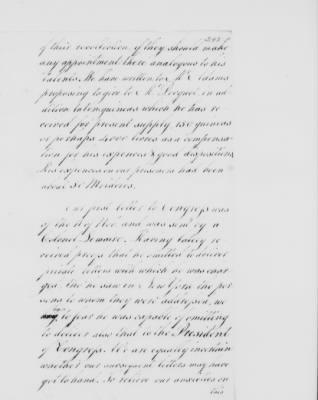 of their revolution, if they should make
any appointment there analogous to his
talents. We have written to Mr Adams
proposing to give to Mr Bocquet in ad
dition to ten guineas which he has re
ceived for present supply 150 guineas
or perhaps 4000 livres as a compensa
tion for his expences & good dispositions
his expences on our prisoners had been
about 30 Moidores.
Our first letter to Congress was
of the 11 of Nov and was sent by a
Colonel Senaro. Having lately re
ceived proof that he omitted to deliver
private letters with which he was char
ged, tho he saw in New York the per
sons to whom they were addressed, we
to fear he was capable of omitting
to deliver also that to the President
of Congress. We are equally uncertain
whether our subsequent letters may have
got to hand. To relieve our anxieties on
this